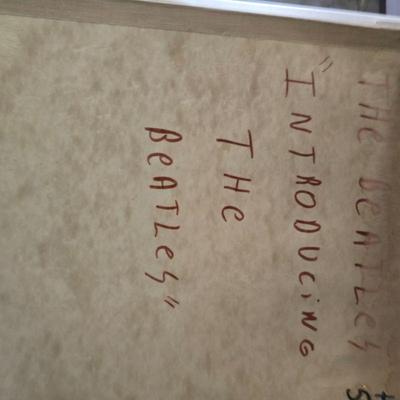 THE BEATLES
"INTRODUCING
THE
BEATLES"